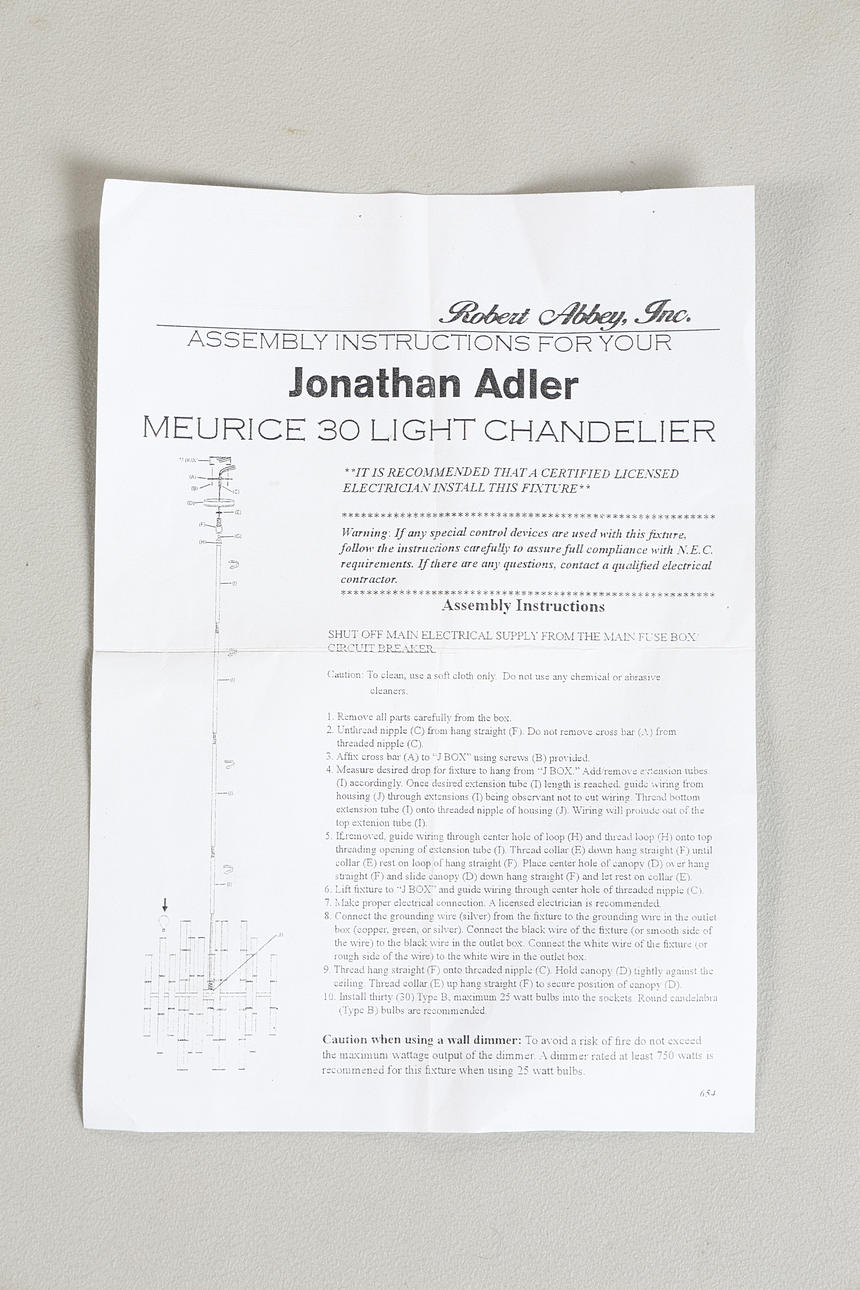 Robert Abbey, Inc.
ASSEMBLY INSTRUCTIONS FOR YOUR
Jonathan Adler
MEURICE 30 LIGHT CHANDELIER
**IT IS RECOMMENDED THAT A CERTIFIED LICENSED
ELECTRICIAN INSTALL THIS FIXTURE**
Warning: If any special control devices are used with this fixture,
follow the instructions carefully to assure full compliance with N.E.C.
requirements. If there are any questions, contact a qualified electrical
contractor.
Assembly Instructions
SHUT OFF MAIN ELECTRICAL SUPPLY FROM THE MAIN FUSE BOX/
CIRCUIT BREAKER.
Caution: To clean, use a soft cloth only. Do not use any chemical or abrasive
cleaners.
1. Remove all parts carefully from the box.
2. Unthread nipple (C) from hang straight (F). Do not remove cross bar (A) from
threaded nipple (C).
3. Affix cross bar (A) to “J BOX” using screws (B) provided.
4. Measure desired drop for fixture to hang from “J BOX.” Add/remove extension tubes
(I) accordingly. Once desired extension tube (I) length is reached, guide wiring from
housing (J) through extensions (I) being observant not to cut wiring. Thread bottom
extension tube (I) onto threaded nipple of housing (J). Wiring will protude out of the
top extenion tube (I).
5. If removed, guide wiring through center hole of loop (H) and thread loop (H) onto top
threading opening of extension tube (I). Thread collar (E) down hang straight (F) until
collar (E) rest on loop of hang straight (F). Place center hole of canopy (D) over hang
straight (F) and slide canopy (D) down hang straight (F) and let rest on collar (E).
6. Lift fixture to “J BOX” and guide wiring through center hole of threaded nipple (C).
7. Make proper electrical connection. A licensed electrician is recommended.
8. Connect the grounding wire (silver) from the fixture to the grounding wire in the outlet
box (copper, green, or silver). Connect the black wire of the fixture (or smooth side of
the wire) to the black wire in the outlet box. Connect the white wire of the fixture (or
rough side of the wire) to the white wire in the outlet box.
9. Thread hang straight (F) onto threaded nipple (C). Hold canopy (D) tightly against the
ceiling. Thread collar (E) up hang straight (F) to secure position of canopy (D).
10. Install thirty (30) Type B, maximum 25 watt bulbs into the sockets. Round candelabra
(Type B) bulbs are recommended.
Caution when using a wall dimmer: To avoid a risk of fire do not exceed
the maximum wattage output of the dimmer. A dimmer rated at least 750 watts is
recommened for this fixture when using 25 watt bulbs.
654